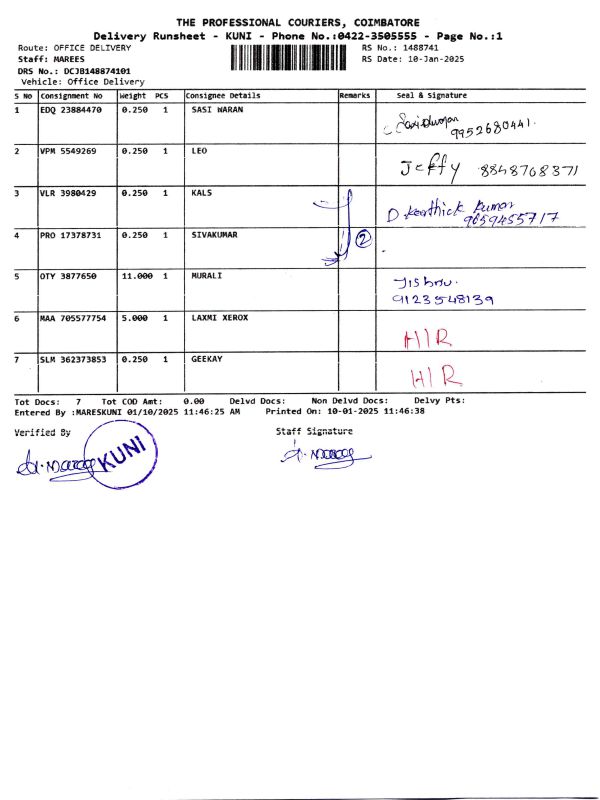 THE PROFESSIONAL COURIERS, COIMBATORE
Delivery Runsheet - KUNI - Phone No.:0422-3505555 - Page No.:1
Route: OFFICE DELIVERY RS No.: 1488741
Staff: MAREES RS Date: 10-Jan-2025
DRS No.: DCJB148874101
Vehicle: Office Delivery
S No Consignment No Weight PCS Consignee Details Remarks Seal & Signature
1 EDQ 23884470 0.250 1 SASI WARAN
9952680441.
2 VPM 5549269 0.250 1 LEO Jeffy 8848768371
3 VLR 3980429 0.250 1 KALS D. Karthick Kumar
9659455717
4 PRO 17378731 0.250 1 SIVAKUMAR 2
5 OTY 3877650 11.000 1 MURALI Jishnu.
9123548139
6 MAA 705577754 5.000 1 LAXMI XEROX H/R
7 SLM 362373853 0.250 1 GEEKAY H/R
Tot Docs: 7 Tot COD Amt: 0.00 Delvd Docs: Non Delvd Docs: Delvy Pts:
Entered By :MARESKUNI 01/10/2025 11:46:25 AM Printed On: 10-01-2025 11:46:38
Verified By Staff Signature
KUNI